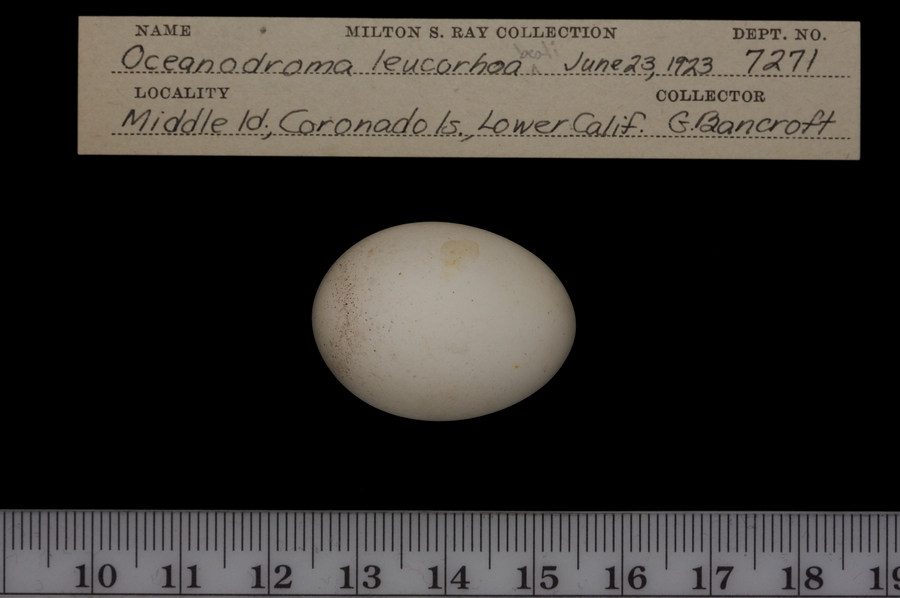 NAME MILTON S. RAY COLLECTION DEPT. NO.
Oceanodroma leucorhoa beali June 23, 1923 7271
LOCALITY COLLECTOR
Middle Id., Coronado Is., Lower Calif. G. Bancroft
10 11 12 13 14 15 16 17 18 19